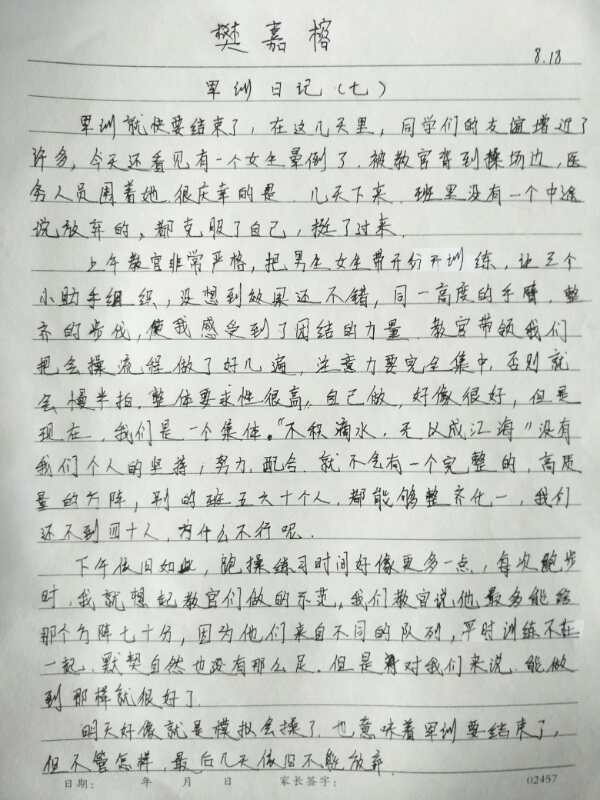 樊嘉榕
8.18
军训日记(七)
军训就快要结束了，在这几天里，同学们的友谊增近了
许多，今天还看见有一个女生晕倒了.被教官背到操场边，医
务人员围着她.很庆幸的是 几天下来.班里没有一个中途
说放弃的，都克服了自己，挺了过来.
上午教官非常严格，把男生女生带开分开训练，让三个
小助手组织，没想到效果还不错，同一高度的手臂，整
齐的步伐，使我感受到了团结的力量.教官带领我们
把会操流程做了好几遍，注意力要完全集中，否则就
会慢半拍，整体要求性很高，自己做，好像很好，但是
现在，我们是一个集体。"不积滴水，无以成江海"没有
我们个人的坚持，努力，配合.就不会有一个完整的，高质
量的方阵，别的班五六十个人.都能够整齐化一，我们
还不到四十人，为什么不行呢.
下午依旧如此，跑操练习时间好像更多一点，每次跑步
时，我就想起教官们做的示范，我们教官说他最多能给
那个方阵七十分，因为他们来自不同的队列，平时训练不在
一起.默契自然也没有那么足.但是对我们来说，能做
到那样就很好了.
明天好像就是模拟会操了.也意味着军训要结束了，
但不管怎样，最后几天依旧不能放弃.
日期： 年 月 日 家长签字： 02457